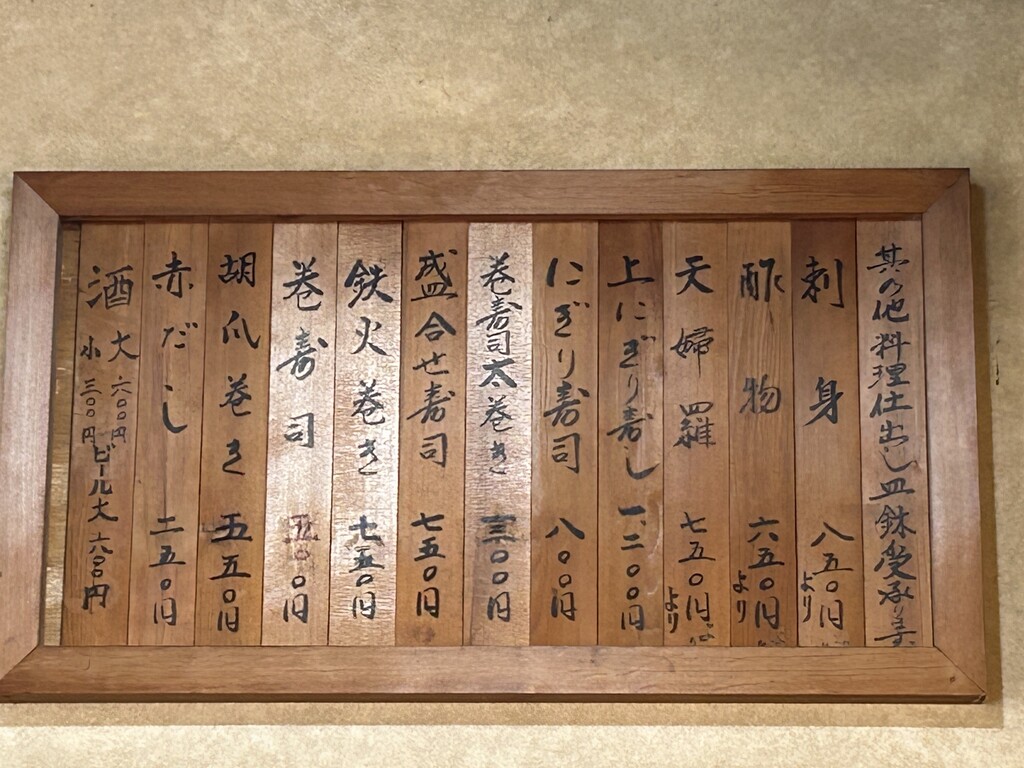 其の他料理仕出し皿鉢受承り〼
刺身 八五〇円より
酢物 六五〇円より
天婦羅 七五〇円より
上にぎり寿し 一、二〇〇円
にぎり寿司 八〇〇円
巻寿司太巻き 三〇〇円
盛合せ寿司 七五〇円
鉄火巻き 七五〇円
巻寿司 五〇〇円
胡爪巻き 五五〇円
赤だし 二五〇円
酒 大 六〇〇円
小 三〇〇円
ビール大 六〇〇円